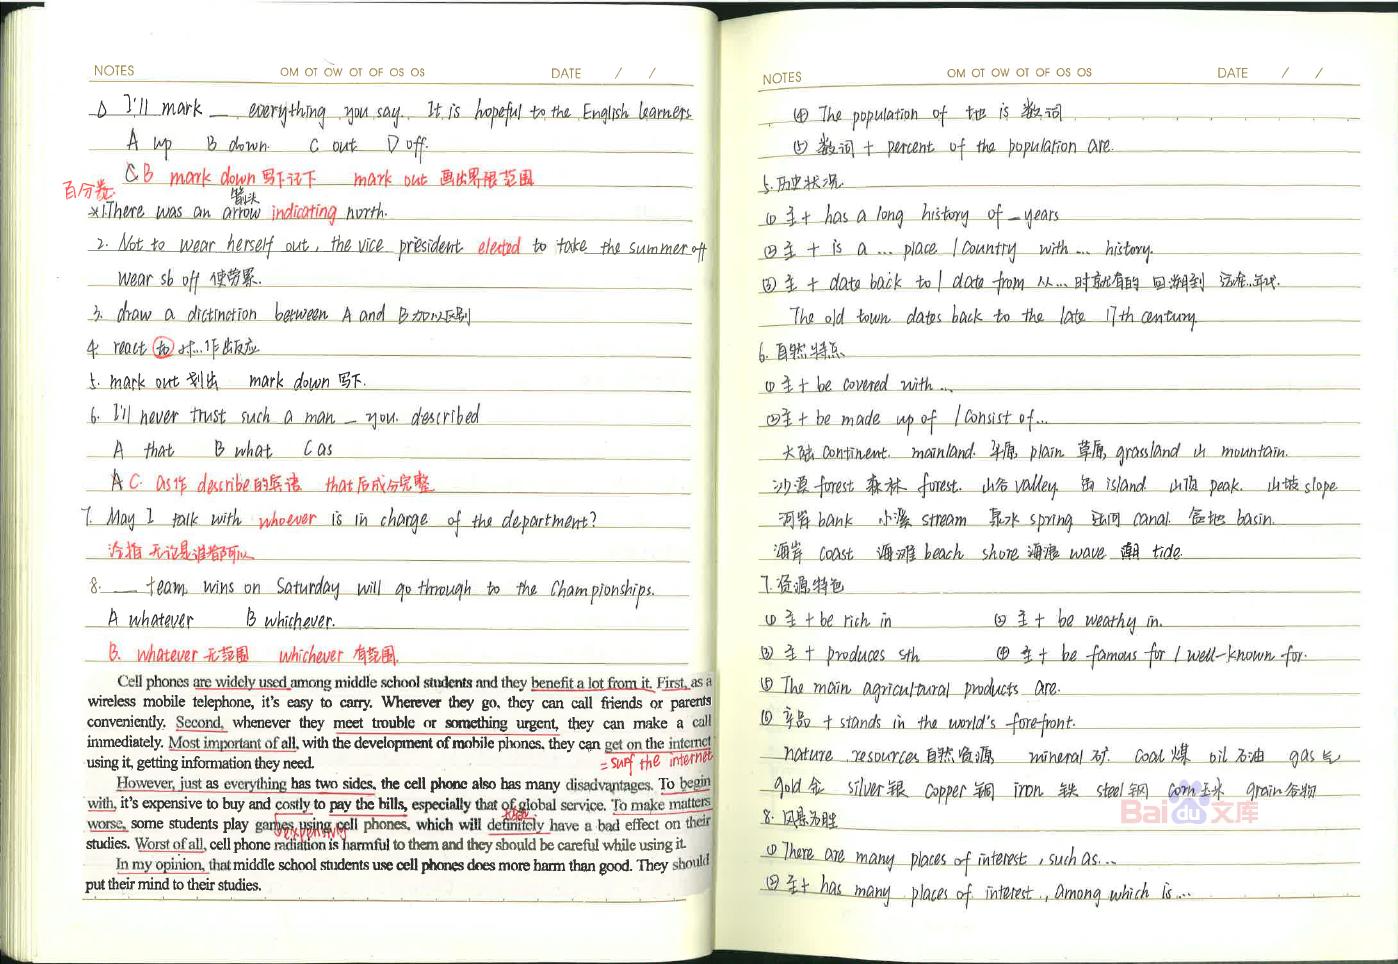 NOTES OM OT OW OT OF OS OS DATE / /
I'll mark __ everything you say. It is hopeful to the English learners
A up B down. C out D off.
C B mark down 写下记下 mark out 画出界限范围
百分类.
箭头
※1.There was an arrow indicating north.
2. Not to wear herself out, the vice president elected to take the summer off
wear sb off 使劳累.
3. draw a dictinction between A and B 加以区别
4. react to 对...作出反应
5. mark out 划出 mark down 写下.
6. I'll never trust such a man _ you described
A that B what C as
A C. as作 describe的宾语 that后成分完整
7. May I talk with whoever is in charge of the department?
泛指 无论是谁都可以
8. __ team wins on Saturday will go through to the Championships.
A whatever B whichever.
B. whatever 无范围 whichever 有范围.
Cell phones are widely used among middle school students and they benefit a lot from it. First, as a
wireless mobile telephone, it's easy to carry. Wherever they go, they can call friends or parents
conveniently. Second, whenever they meet trouble or something urgent, they can make a call
immediately. Most important of all, with the development of mobile phones, they can get on the internet
using it, getting information they need.
= surf the internet
However, just as everything has two sides, the cell phone also has many disadvantages. To begin
with, it's expensive to buy and costly to pay the bills, especially that of global service. To make matters
worse, some students play games using cell phones, which will definitely have a bad effect on their
expensive
studies. Worst of all, cell phone radiation is harmful to them and they should be careful while using it.
In my opinion, that middle school students use cell phones does more harm than good. They should
put their mind to their studies.
NOTES OM OT OW OT OF OS OS DATE / /
④ The population of 地 is 数词
⑤ 数词 + percent of the population are.
5.历史状况.
① 主+ has a long history of _ years
② 主 + is a ... place / country with ... history.
③ 主 + date back to / date from 从...时就有的 回溯到 远在...年代.
The old town dates back to the late 17th century
6. 自然特点
① 主+ be covered with...
② 主+ be made up of / consist of...
大陆 continent. mainland. 平原 plain 草原 grassland 山 mountain.
沙漠 forest 森林 forest. 山谷 valley 岛 island 山顶 peak. 山坡 slope
河岸 bank 小溪 stream 泉水 spring 运河 canal. 盆地 basin.
海岸 coast 海滩 beach shore 海浪 wave 潮 tide.
7. 资源特色
① 主+be rich in ② 主+ be weathy in.
③ 主+ produces sth ④ 主+ be famous for / well-known for.
⑤ The main agricultural products are.
⑥ 产品 + stands in the world's forefront.
nature resources 自然资源 mineral 矿. coal 煤 oil 石油 gas 气
gold 金 silver 银 copper 铜 iron 铁 steel 钢 corn 玉米 grain 谷物
Baidu文库
8. 风景名胜
① There are many places of interest, such as...
② 主+ has many places of interest, among which is...